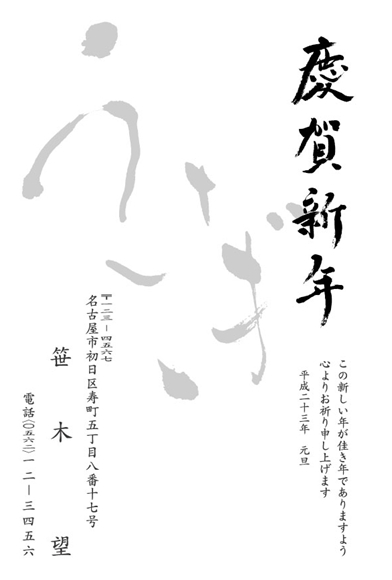 慶賀新年
この新しい年が佳き年でありますよう
心よりお祈り申し上げます
平成二十三年　元旦
うさぎ
〒一二三－四五六七
名古屋市初日区寿町五丁目八番十七号
笹木　望
電話（〇五六二）一二－三四五六